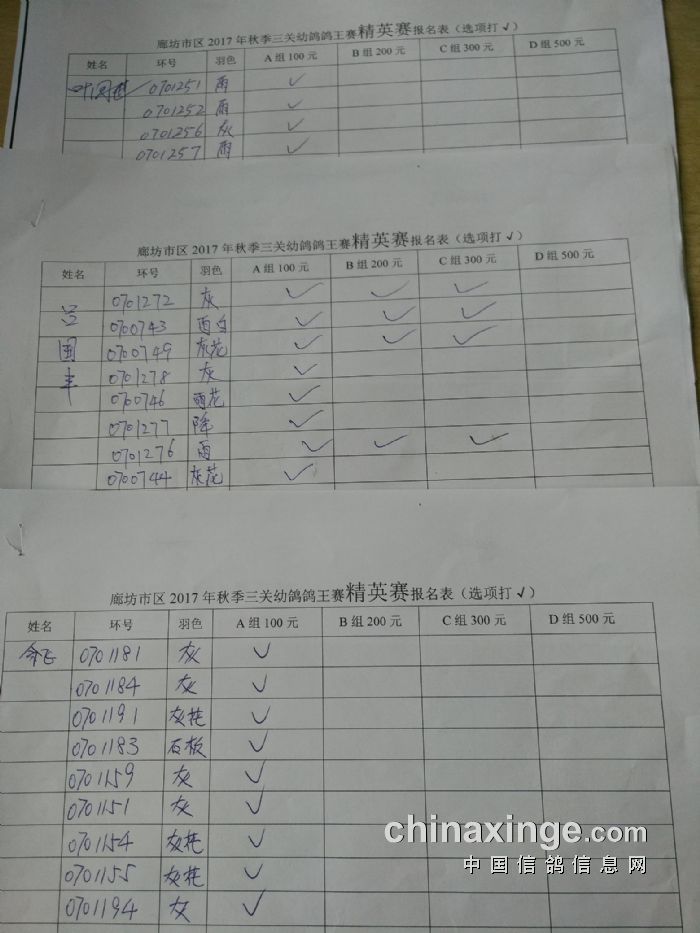 廊坊市区 2017 年秋季三关幼鸽鸽王赛精英赛报名表（选项打 √）
姓名 环号 羽色 A 组 100 元 B 组 200 元 C 组 300 元 D 组 500 元
0701251 雨 ✓
0701252 雨 ✓
0701256 灰 ✓
0701257 雨 ✓
廊坊市区 2017 年秋季三关幼鸽鸽王赛精英赛报名表（选项打 √）
姓名 环号 羽色 A 组 100 元 B 组 200 元 C 组 300 元 D 组 500 元
0701272 灰 ✓ ✓ ✓
吕 0700743 雨白 ✓ ✓ ✓
国 0700749 灰花 ✓ ✓ ✓
丰 0701278 灰 ✓
0700746 雨花 ✓
0701277 降 ✓
0701276 雨 ✓ ✓ ✓
0700744 灰花 ✓
廊坊市区 2017 年秋季三关幼鸽鸽王赛精英赛报名表（选项打 √）
姓名 环号 羽色 A 组 100 元 B 组 200 元 C 组 300 元 D 组 500 元
0701181 灰 ✓
0701184 灰 ✓
0701191 灰花 ✓
0701183 石板 ✓
0701159 灰 ✓
0701151 灰 ✓
0701154 灰花 ✓
0701155 灰花 ✓
0701194 灰 ✓
chinaxinge.com
中国信鸽信息网